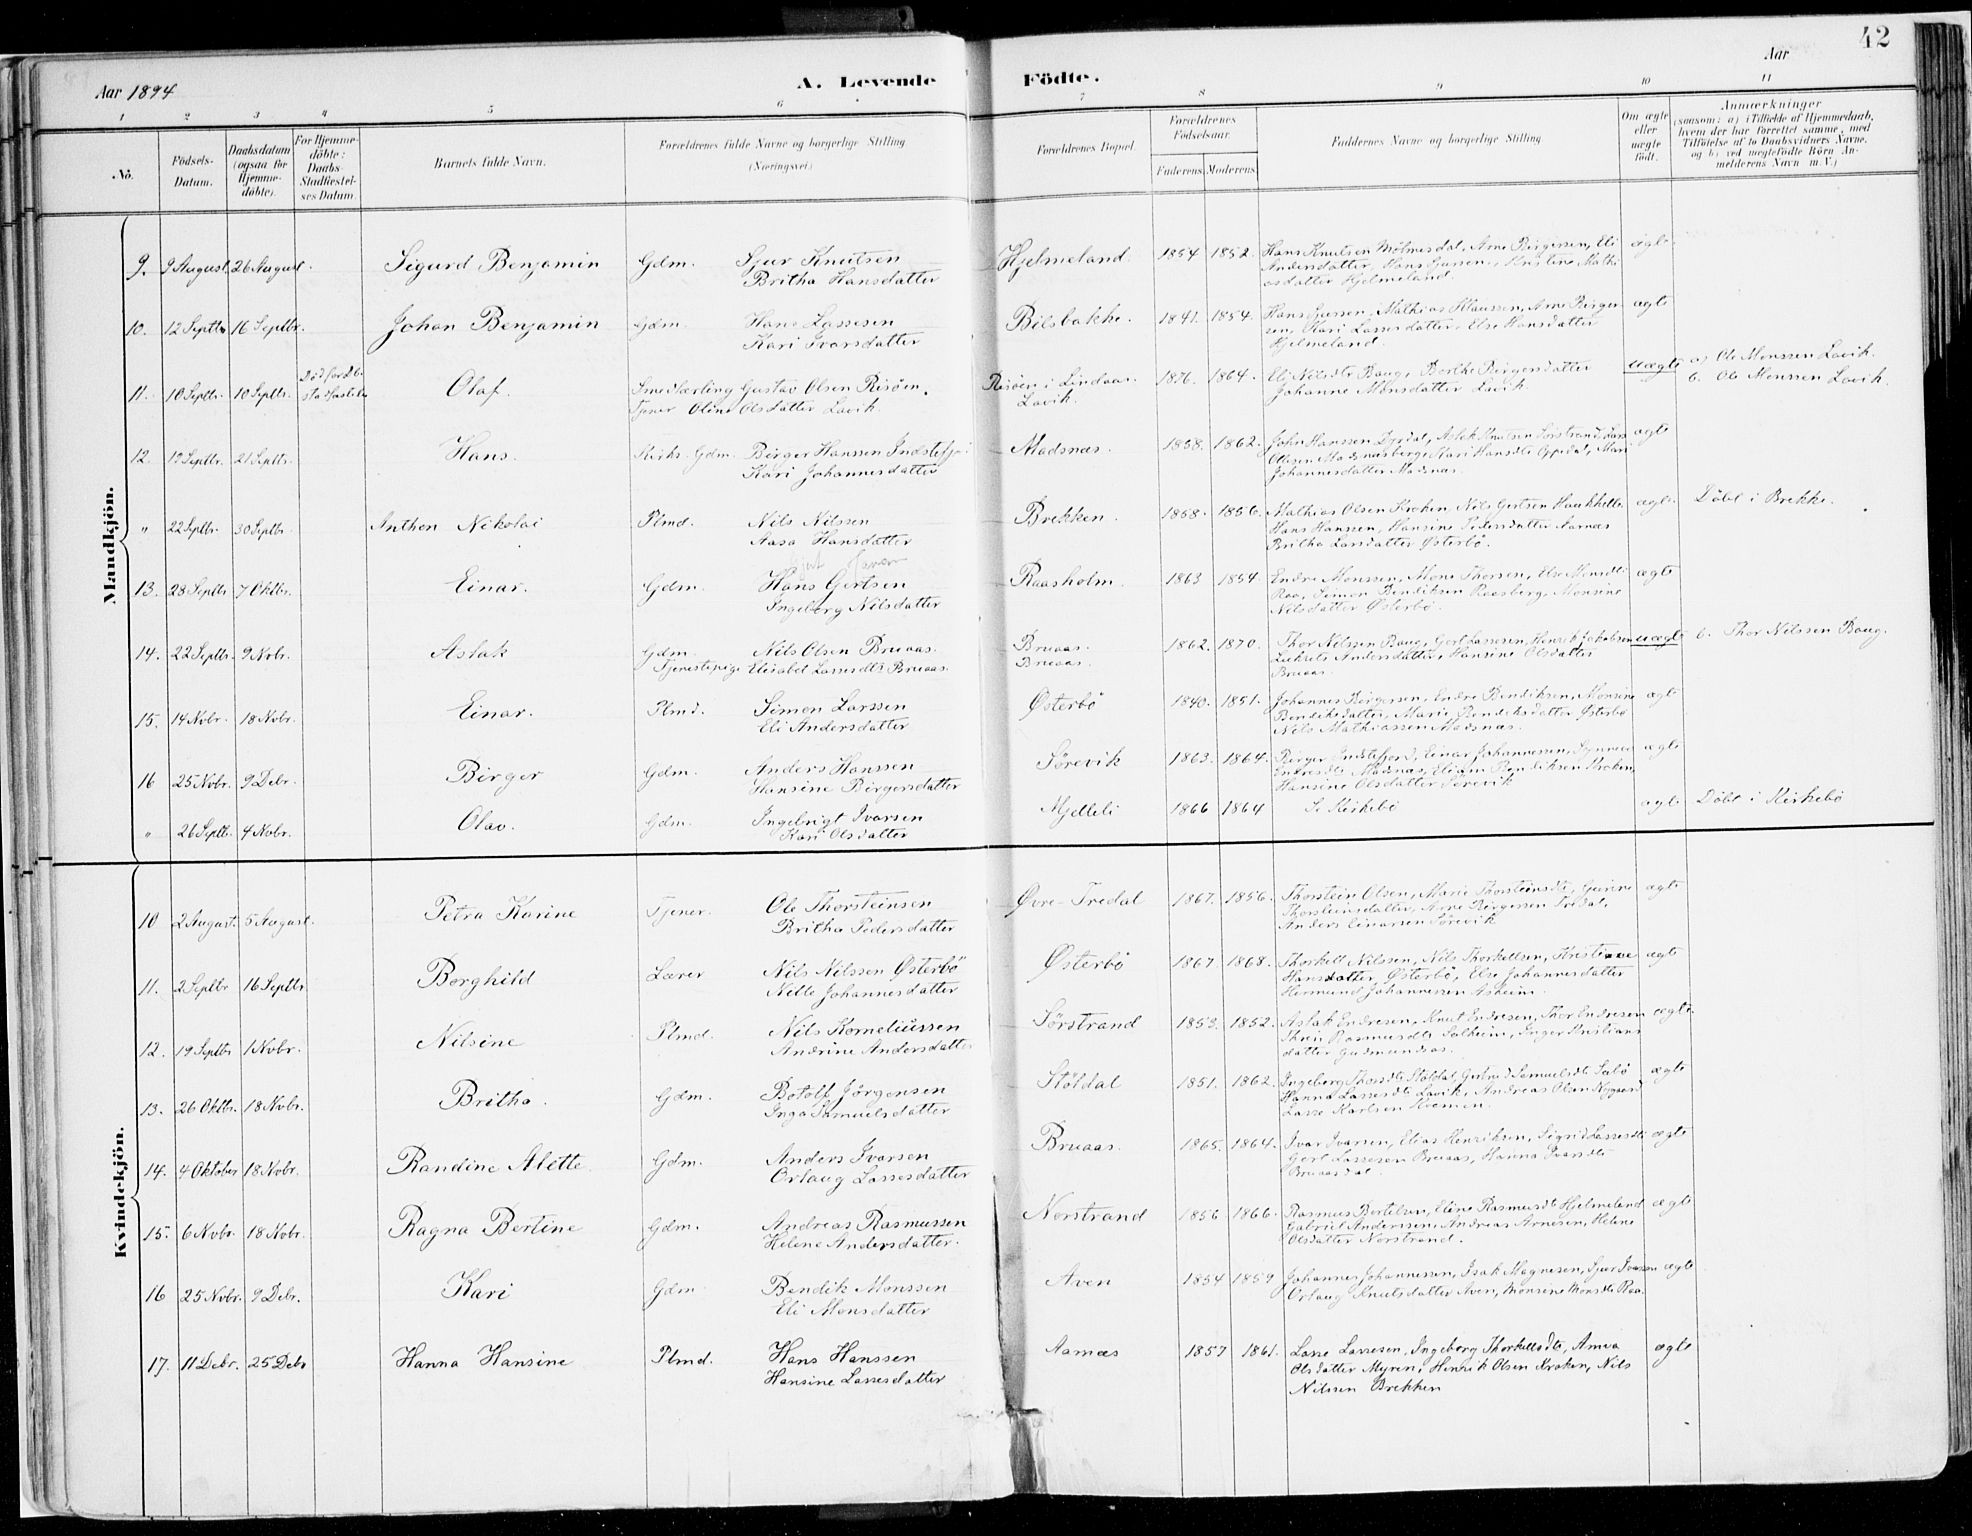 42
Aar 1894
A. Levende Födte.
Aar
1 2 3 4 5 6 7 8 9 10 11
No.
Födsels-Datum.
Daabsdatum (ogsaa for Hjemmedöbte).
For Hjemmedöbte: Daabs-Stadfæstelses Datum.
Barnets fulde Navn.
Forældrenes fulde Navne og borgerlige Stilling (Næringsvei)
Forældrenes Bopæl.
Forældrenes Födselsaar.
Faderens Moderens
Faddernes Navne og borgerlige Stilling
Om ægte eller uægte födt.
Anmærkninger (saasom: a) i Tilfælde af Hjemmedaab, hvem der har forrettet samme, med Tilföielse af to Daabsvidners Navne, og b) ved uægtefödte Börn Anmelderens Navn m. V.)
Mandkjön.
9. 9 August 26 August. Sigurd Benjamin Gdm. Sjur Knutsen Hjelmeland 1854 1852. Hans Knutsen Mölmesdal, Arne Birgersen, Eli ægte
Britha Hansdatter Andersdatter, Hans Gjersen, Kristine Mathi
asdatter Hjelmeland.
10. 12 Septbr 16 Septbr. Johan Benjamin Gdm. Hans Lassesen Bilsbakke. 1841. 1854. Hans Gjersen, Mathias Klaussen, Arne Birger- ægte
Kari Ivarsdatter sen, Kari Lassesdatter, Else Hansdatter
Hjelmeland.
11. 10 Septbr. 10 Septbr. Död för Db. stadfæstelse Olaf. Smedlærling Gustav Olsen Risöen. Risöen i Lindaas. 1876. 1864. Eli Nilsdtr Baug, Berthe Birgersdatter uægte a) Ole Monssen Lavik.
Tjener Oline Olsdatter Lavik. Lavik. Johanne Monsdatter Lavik. b. Ole Monssen Lavik.
12. 19 Septbr. 21 Septbr. Hans. Kirks. Gdm. Birger Hanssen Indstefj. Madsnæs. 1868. 1862. John Hanssen Dyrdal, Aslak Knutsen Sörstrand, Lars ægte
Kari Johannesdatter Olsen Madsnæsberg, Kari Hansdtr Oppedal, Mari
Johannesdatter Madsnæs.
" 22 Septbr. 30 Septbr. Anthon Nikolai Plmd. Nils Nilssen Brekken. 1858. 1856. Mathias Olsen Kroken, Nils Gertsen Haukhelle ægte. Döbt i Brekke.
Aasa Hansdatter Hans Hanssen, Hansine Pedersdatter Aarnæs
Britha Larsdatter Østerbö.
13. 28 Septbr 7 Oktbr. Einar. Gdm. Hans Gertsen Raasholm. 1863 1854. Endre Monssen, Mons Thorsen, Else Monsdtr ægte
Ingeborg Nilsdatter Raa, Simon Bendiksen Raasberg, Monsine
Nilsdatter Østerbö.
14. 22 Septbr. 9 Novbr. Aslak Gdm. Nils Olsen Bruaas. Bruaas. 1862. 1870. Thor Nilssen Baug, Gert Lassesen, Henrik Jakobsen uægte b. Thor Nilssen Baug.
Tjenestepige Elisabet Lassesdtr Bruaas. Bruaas. Andersdatter, Hansine Olsdatter
Bruaas.
15. 14 Novbr. 18 Novbr. Einar. Plmd. Simon Larssen Østerbö 1840. 1851. Johannes Birgersen, Endre Bendiksen, Monsine ægte
Eli Andersdatter Bendiksdatter, Marie Bendiksdatter Østerbö
Nils Mathiassen Madsnæs.
16 25 Novbr. 9 Debr. Birger Gdm. Anders Hanssen Sörevik 1863. 1864. Birger Indstefjord, Einar Johannessen, Synneva ægte
Hansine Birgersdatter Endresdtr Madsnæs, Eli Bendiksen Kroken,
Hansine Olsdatter Sörevik
" 26 Septbr. 4 Novbr. Olav. Gdm. Ingebrigt Ivarsen Mjelleli 1866 1864 Se Kirkebö ægte Döbt i Kirkebö
Kari Olsdatter
Kvindekjön.
10 2 August. 5 August. Petra Karine Tjener. Ole Thorsteinsen Øvre-Tredal 1867. 1856. Thorstein Olsen, Marie Thorsteinsdtr, Gurine ægte
Britha Pedersdatter Thorsteinsdatter, Arne Birgersen Tredal,
Anders Einarsen Sörevik
11. 2 Septbr 16 Septbr Borghild Lærer Nils Nilssen Østerbö Østerbö 1867. 1868. Thorkell Nilssen, Nils Thorkellsen, Kristine ægte
Nille Johannesdatter Hansdatter, Østerbö, Else Johannesdatter
Hermund Johannessen Asheim.
12. 19 Septbr 1 Novbr. Nilsine Plmd. Nils Korneliussen Sörstrand 1853. 1852. Aslak Endresen, Knut Endresen, Thor Endresen ægte.
Andrine Andersdatter Rasmusdtr Solheim, Inger Kristians
datter Gudmundsaas.
13. 26 Oktbr. 18 Novbr. Britha. Gdm. Botolf Jörgensen Stöldal 1851. 1862. Ingeborg Thorsdtr Stöldal, Gertrud Samuelsdtr Salbö ægte
Inga Samuelsdatter Hanna Lassesdtr Lavik, Andreas Olsen Nygaard
Lasse Karlsen Kremen.
14. 4 Oktober 18 Novbr. Randine Alette. Gdm. Anders Ivarsen Bruaas. 1865. 1864. Ivar Ivarsen, Elias Henriksen, Sigrid Lassesdtr ægte
Orlaug Lassesdatter Gert Lassesen Bruaas, Hanna Ivarsdtr
Bruaasdal.
15. 6 Novbr. 18 Novbr. Ragna Bertine Gdm. Andreas Rasmussen Norstrand 1856 1866. Rasmus Bertelsen, Eline Rasmusdtr Hjelmeland ægte
Helene Andersdatter. Gabriel Anderssen, Andreas Arnesen, Helene
Olsdatter Norstrand.
16 25 Novbr. 9 Debr. Kari Gdm. Bendik Monssen Aven 1854 1859 Johannes Johannessen, Isak Magnesen, Sjur Ivarsen ægte
Eli Monsdatter Orlaug Knutsdatter Aven, Monsine Monsdtr Raa.
17. 11 Debr. 25 Debr Hanna Hansine Plmd. Hans Hanssen Aarnæs 1857 1861. Lasse Lassesen, Ingeborg Thorkellsdtr, Anna ægte
Hansine Lassesdatter Olsdatter Myren, Henrik Olsen Kroken, Nils
Nilssen Brekken